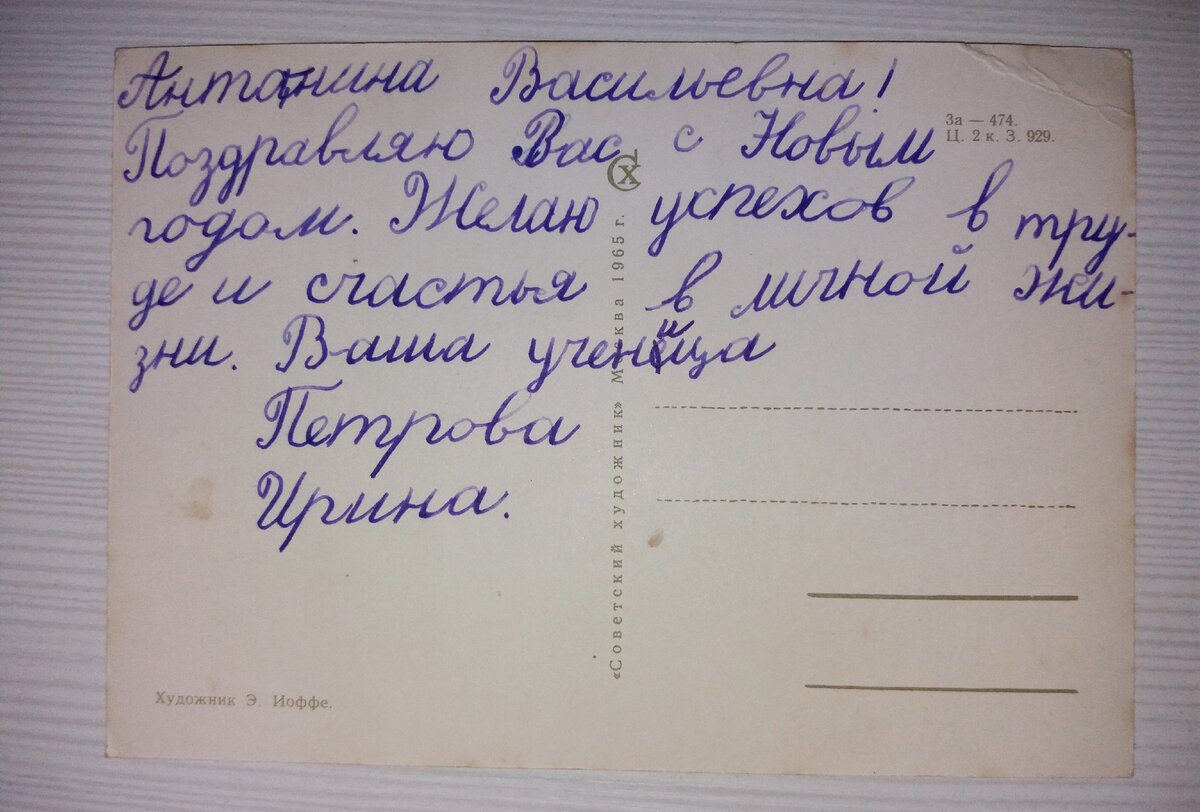 Антонина Васильевна!
Поздравляю Вас с Новым
годом. Желаю успехов в тру-
де и счастья в личной жи-
зни. Ваша ученица
Петрова
Ирина.
За — 474.
Ц. 2 к. З. 929.
СХ
«Советский художник» Москва 1965 г.
Художник Э. Иоффе.